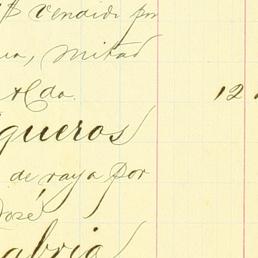 vendido por
mitad
12
gueros
de raya por
José
abrio